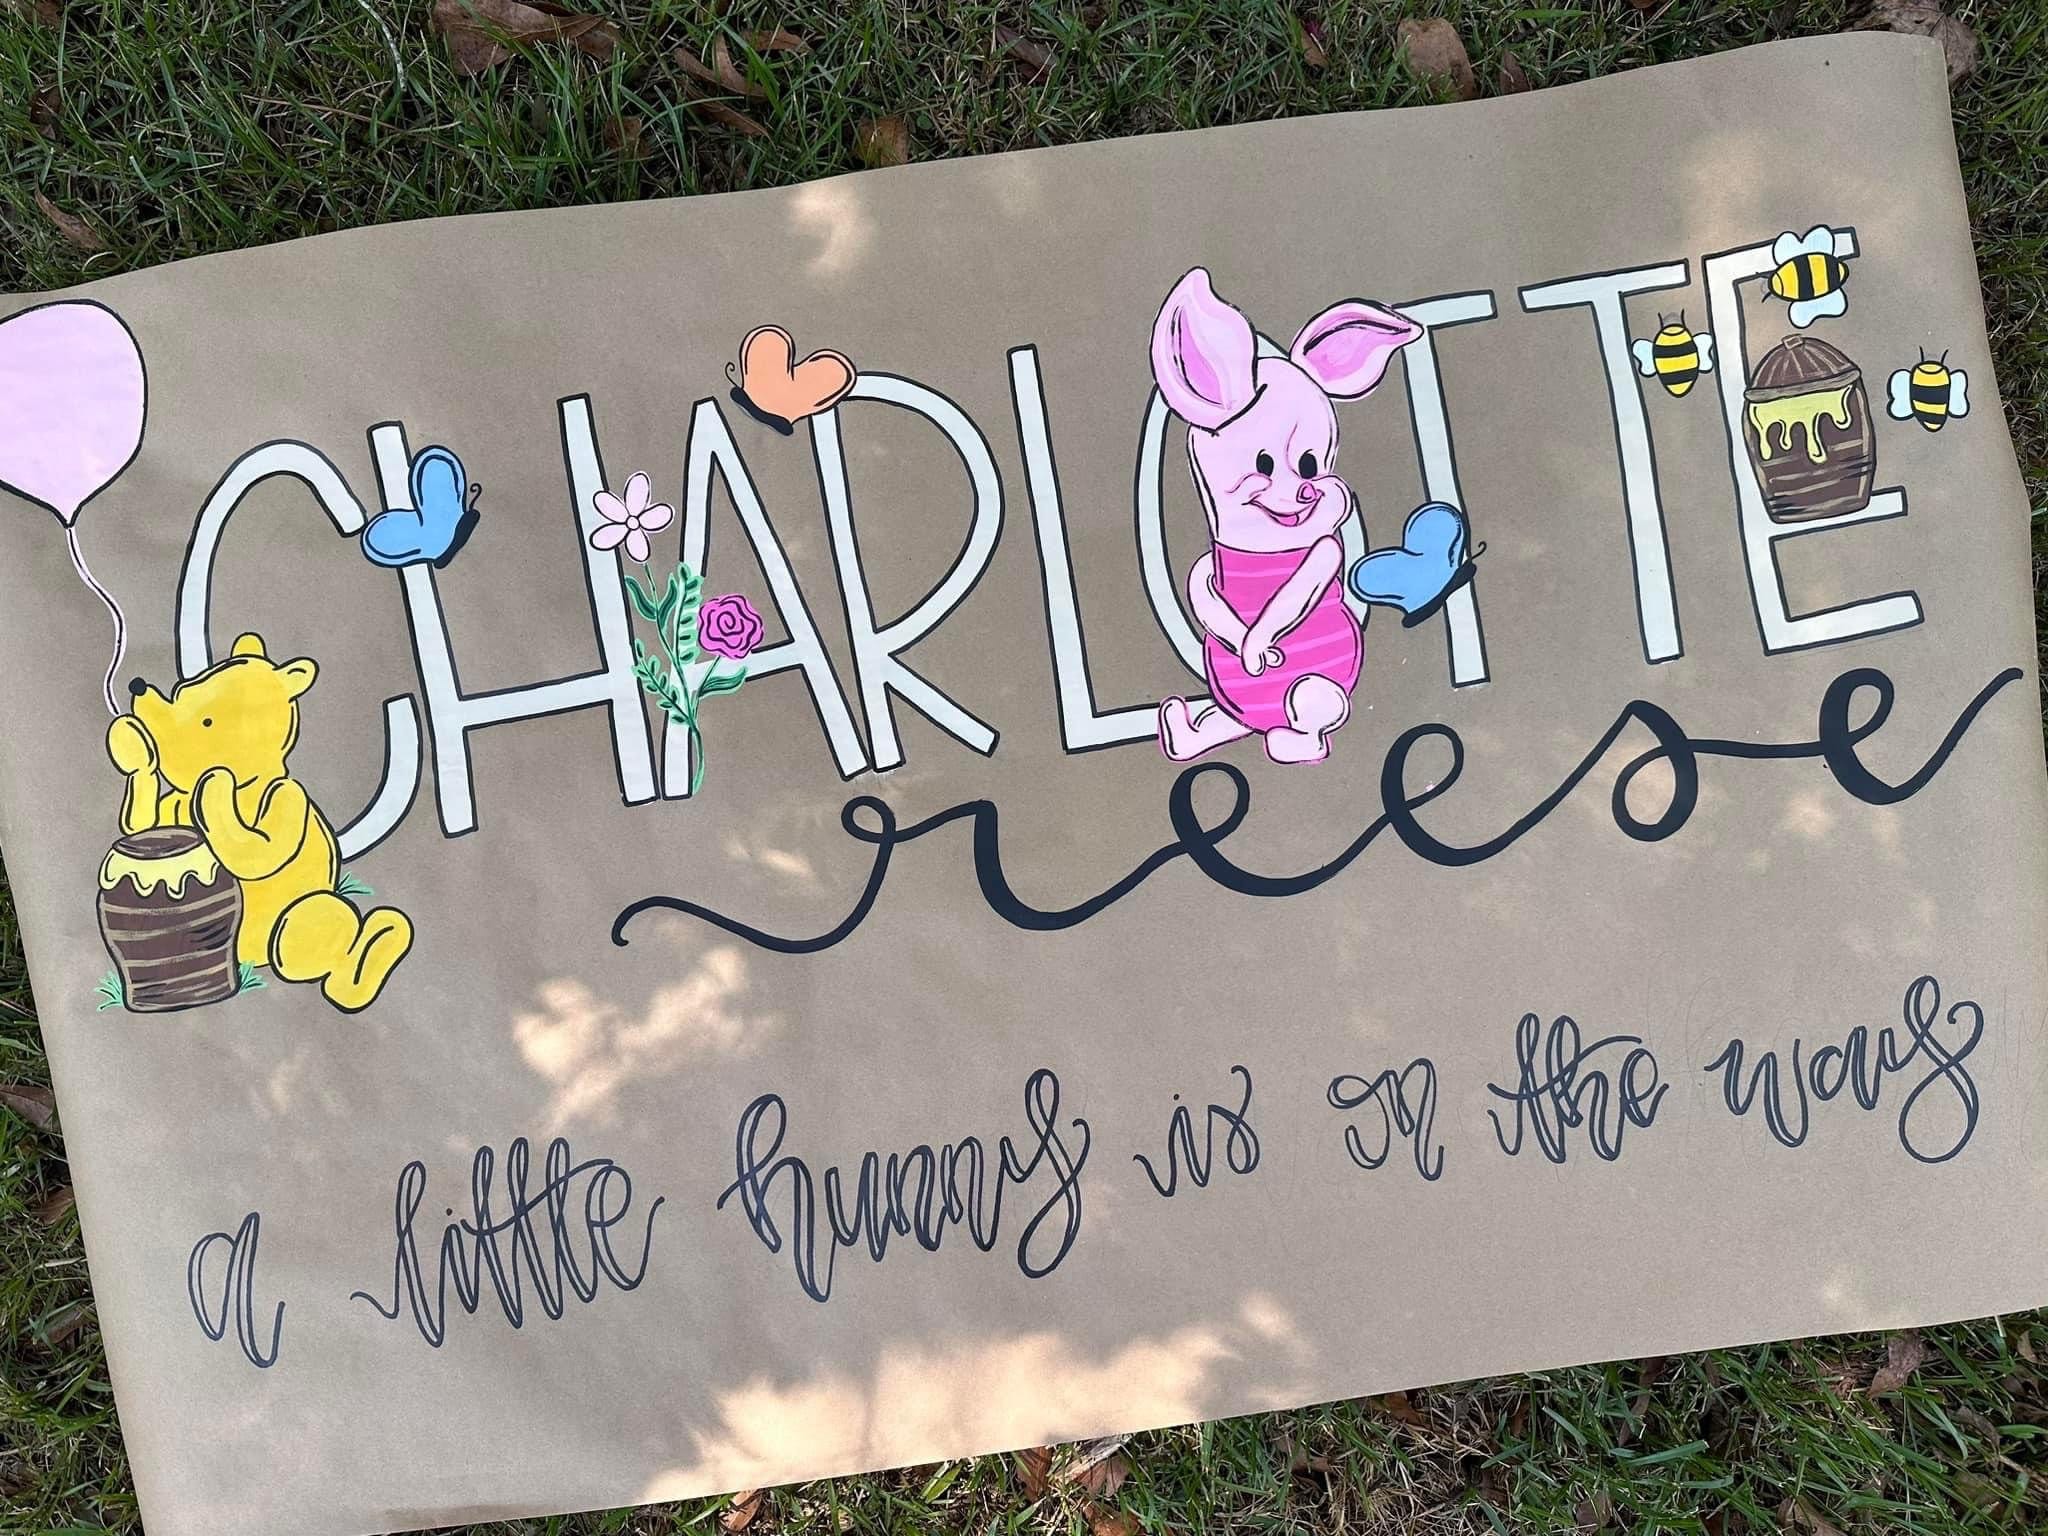 CHARLOTTE
reese
a little hunny is on the way